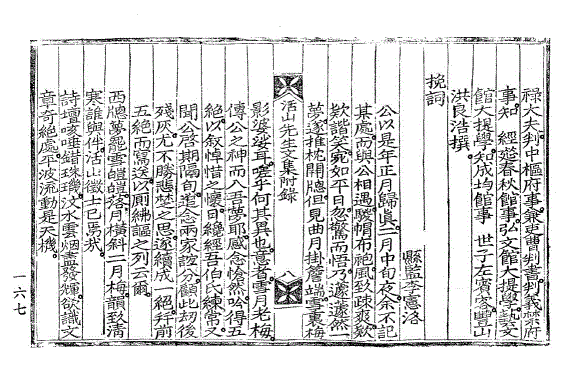 祿大夫判中樞府事兼吏曹判書判義禁府
事知　經筵春秋館事弘文館大提學藝文
館大提學知成均館事　世子左賓客豐山
洪良浩撰
挽詞
縣監李憲洛
公以是年正月歸眞二月中旬夜余不記
其處而與公相遇驍帽布袍風致疎爽勸
欵諧笑宛如平日忽驚而悟乃蘧蘧然一
夢遂推枕開牕但見曲月掛簷端雪裏梅
活山先生文集附錄　　八
影婆娑耳嗟乎何其異也意者雪月老梅
傳公之神而入吾夢耶感念愴然吟得五
絶以叙悼惜之懷日纔經吾伯氏練常又
聞公啓期隔旬追念兩家誼分顧此劫後
殘灰尤不勝悲楚之思遂續成一絶幷前
五絶而寫送以厠紼謳之列云爾
西牕夢罷雪皚皚落月橫斜二月梅韻致淸
寒誰與伴活山徵士已焉哉
詩壇咳唾錯珠璣汶水雲烟盡發輝欲識文
章奇絶處平波流動是天機
一六七